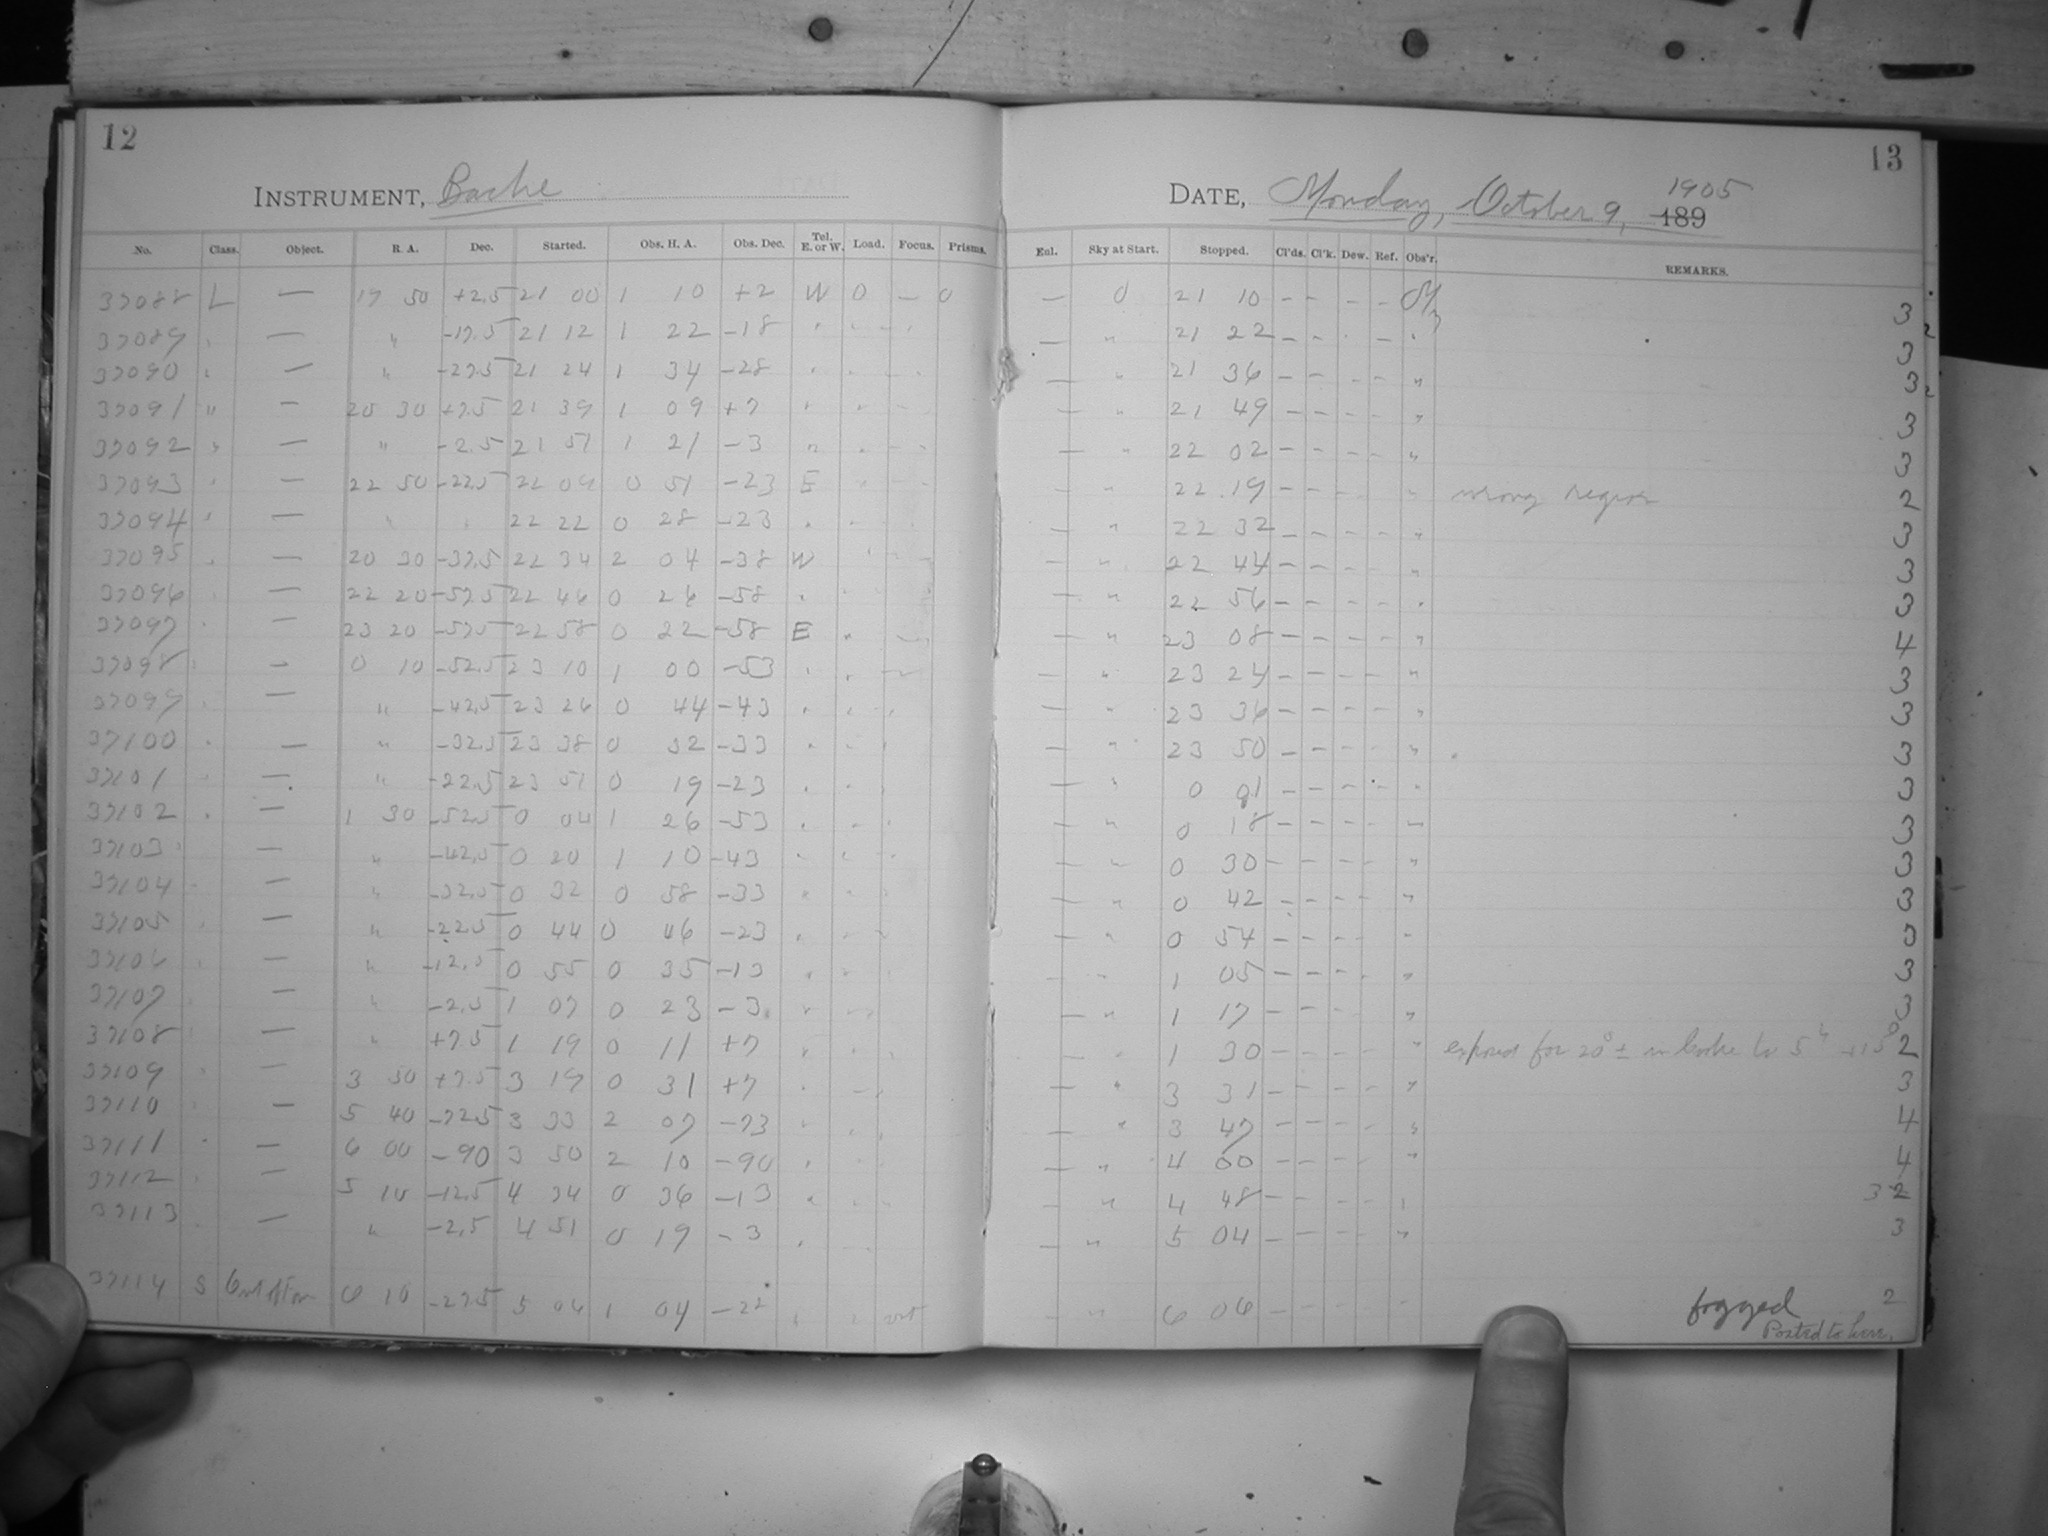 12
13
INSTRUMENT, Bache
DATE, Monday, October 9, 1905 189
No. Class. Object. R. A. Dec. Started. Obs. H. A. Obs. Dec. Tel. E. or W. Load. Focus. Prisms. Enl. Sky at Start. Stopped. Cl'ds. Cl'k. Dew. Ref. Obs'r. REMARKS.
37088 L — 19 50 +2.5 21 00 1 10 +2 W 0 — 0 — 0 21 10 – – – – 3
37089 " — " -17.5 21 12 1 22 -18 " — " 21 22 – – – – " 3
37090 " — " -27.5 21 24 1 34 -28 " — " 21 36 – – – – " 3
37091 " — 20 30 +7.5 21 39 1 09 +7 " — " 21 49 – – – – " 3
37092 " — " -2.5 21 51 1 21 -3 " — " 22 02 – – – – " 3
37093 " — 22 50 -22.5 22 09 0 51 -23 E — " 22 19 – – – – " wrong region 2
37094 " — " " 22 22 0 28 -23 " — " 22 32 – – – – " 3
37095 " — 20 30 -37.5 22 34 2 04 -38 W — " 22 44 – – – – " 3
37096 " — 22 20 -57.5 22 46 0 26 -58 " — " 22 56 – – – – " 3
37097 " — 23 20 -57.5 22 58 0 22 -58 E " — " 23 08 – – – – " 4
37098 " — 0 10 -52.5 23 10 1 00 -53 " — " 23 24 – – – – " 3
37099 " — " -42.5 23 26 0 44 -43 " — " 23 36 – – – – " 3
37100 " — " -32.5 23 38 0 32 -33 " — " 23 50 – – – – " 3
37101 " — " -22.5 23 51 0 19 -23 " — " 0 01 – – – – " 3
37102 " — 1 30 -52.5 0 04 1 26 -53 " — " 0 18 – – – – " 3
37103 " — " -42.5 0 20 1 10 -43 " — " 0 30 – – – – " 3
37104 " — " -32.5 0 32 0 58 -33 " — " 0 42 – – – – " 3
37105 " — " -22.5 0 44 0 46 -23 " — " 0 54 – – – – " 3
37106 " — " -12.5 0 55 0 35 -13 " — " 1 05 – – – – " 3
37107 " — " -2.5 1 07 0 23 -3 " — " 1 17 – – – – " 3
37108 " — " +7.5 1 19 0 11 +7 " — " 1 30 – – – – " exposed for 20s ± 2
37109 " — 3 50 +7.5 3 19 0 31 +7 " — " 3 31 – – – – " 3
37110 " — 5 40 -72.5 3 33 2 07 -73 " — " 3 47 – – – – " 4
37111 " — 6 00 -90 3 50 2 10 -90 " — " 4 00 – – – – " 4
37112 " — 5 10 -12.5 4 34 0 36 -13 " — " 4 48 – – – – " 3 2
37113 " — " -2.5 4 51 0 19 -3 " — " 5 04 – – – – " 3
37114 S 6 10 -27.5 5 06 1 04 -22 " out — " 6 06 – – – – " fogged 2
Posted to here.